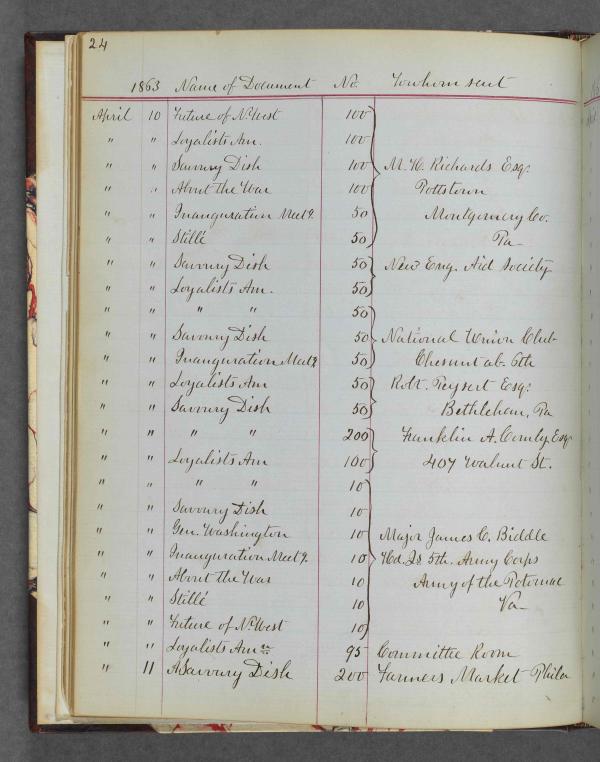 24
1863 Name of Document No. To whom sent
April 10 Future of N. West 100
" " Loyalists Am. 100
" " Savoury Dish 100 M. H. Richards Esq.
" " About the War 100 Pottstown
" " Inauguration Meetg. 50 Montgomery Co.
" " Stillé 50 Pa
" " Savoury Dish 50 New Eng. Aid Society
" " Loyalists Am. 50
" " " " 50
" " Savoury Dish 50 National Union Club
" " Inauguration Meetg. 50 Chesnut ab. 6th
" " Loyalists Am 50 Robt. Peysert Esq.
" " Savoury Dish 50 Bethlehem, Pa
" " " " 200 Franklin A. Comly, Esq
" " Loyalists Am 100 407 Walnut St.
" " " " 10
" " Savoury Dish 10
" " Gen. Washington 10 Major James C. Biddle
" " Inauguration Meetg. 10 Hd. Qs 5th. Army Corps
" " About the War 10 Army of the Potomac
" " Stillé 10 Va
" " Future of N. West 10
" " Loyalists Amcn 95 Committee Room
" 11 A Savoury Dish 200 Farmers Market Phila